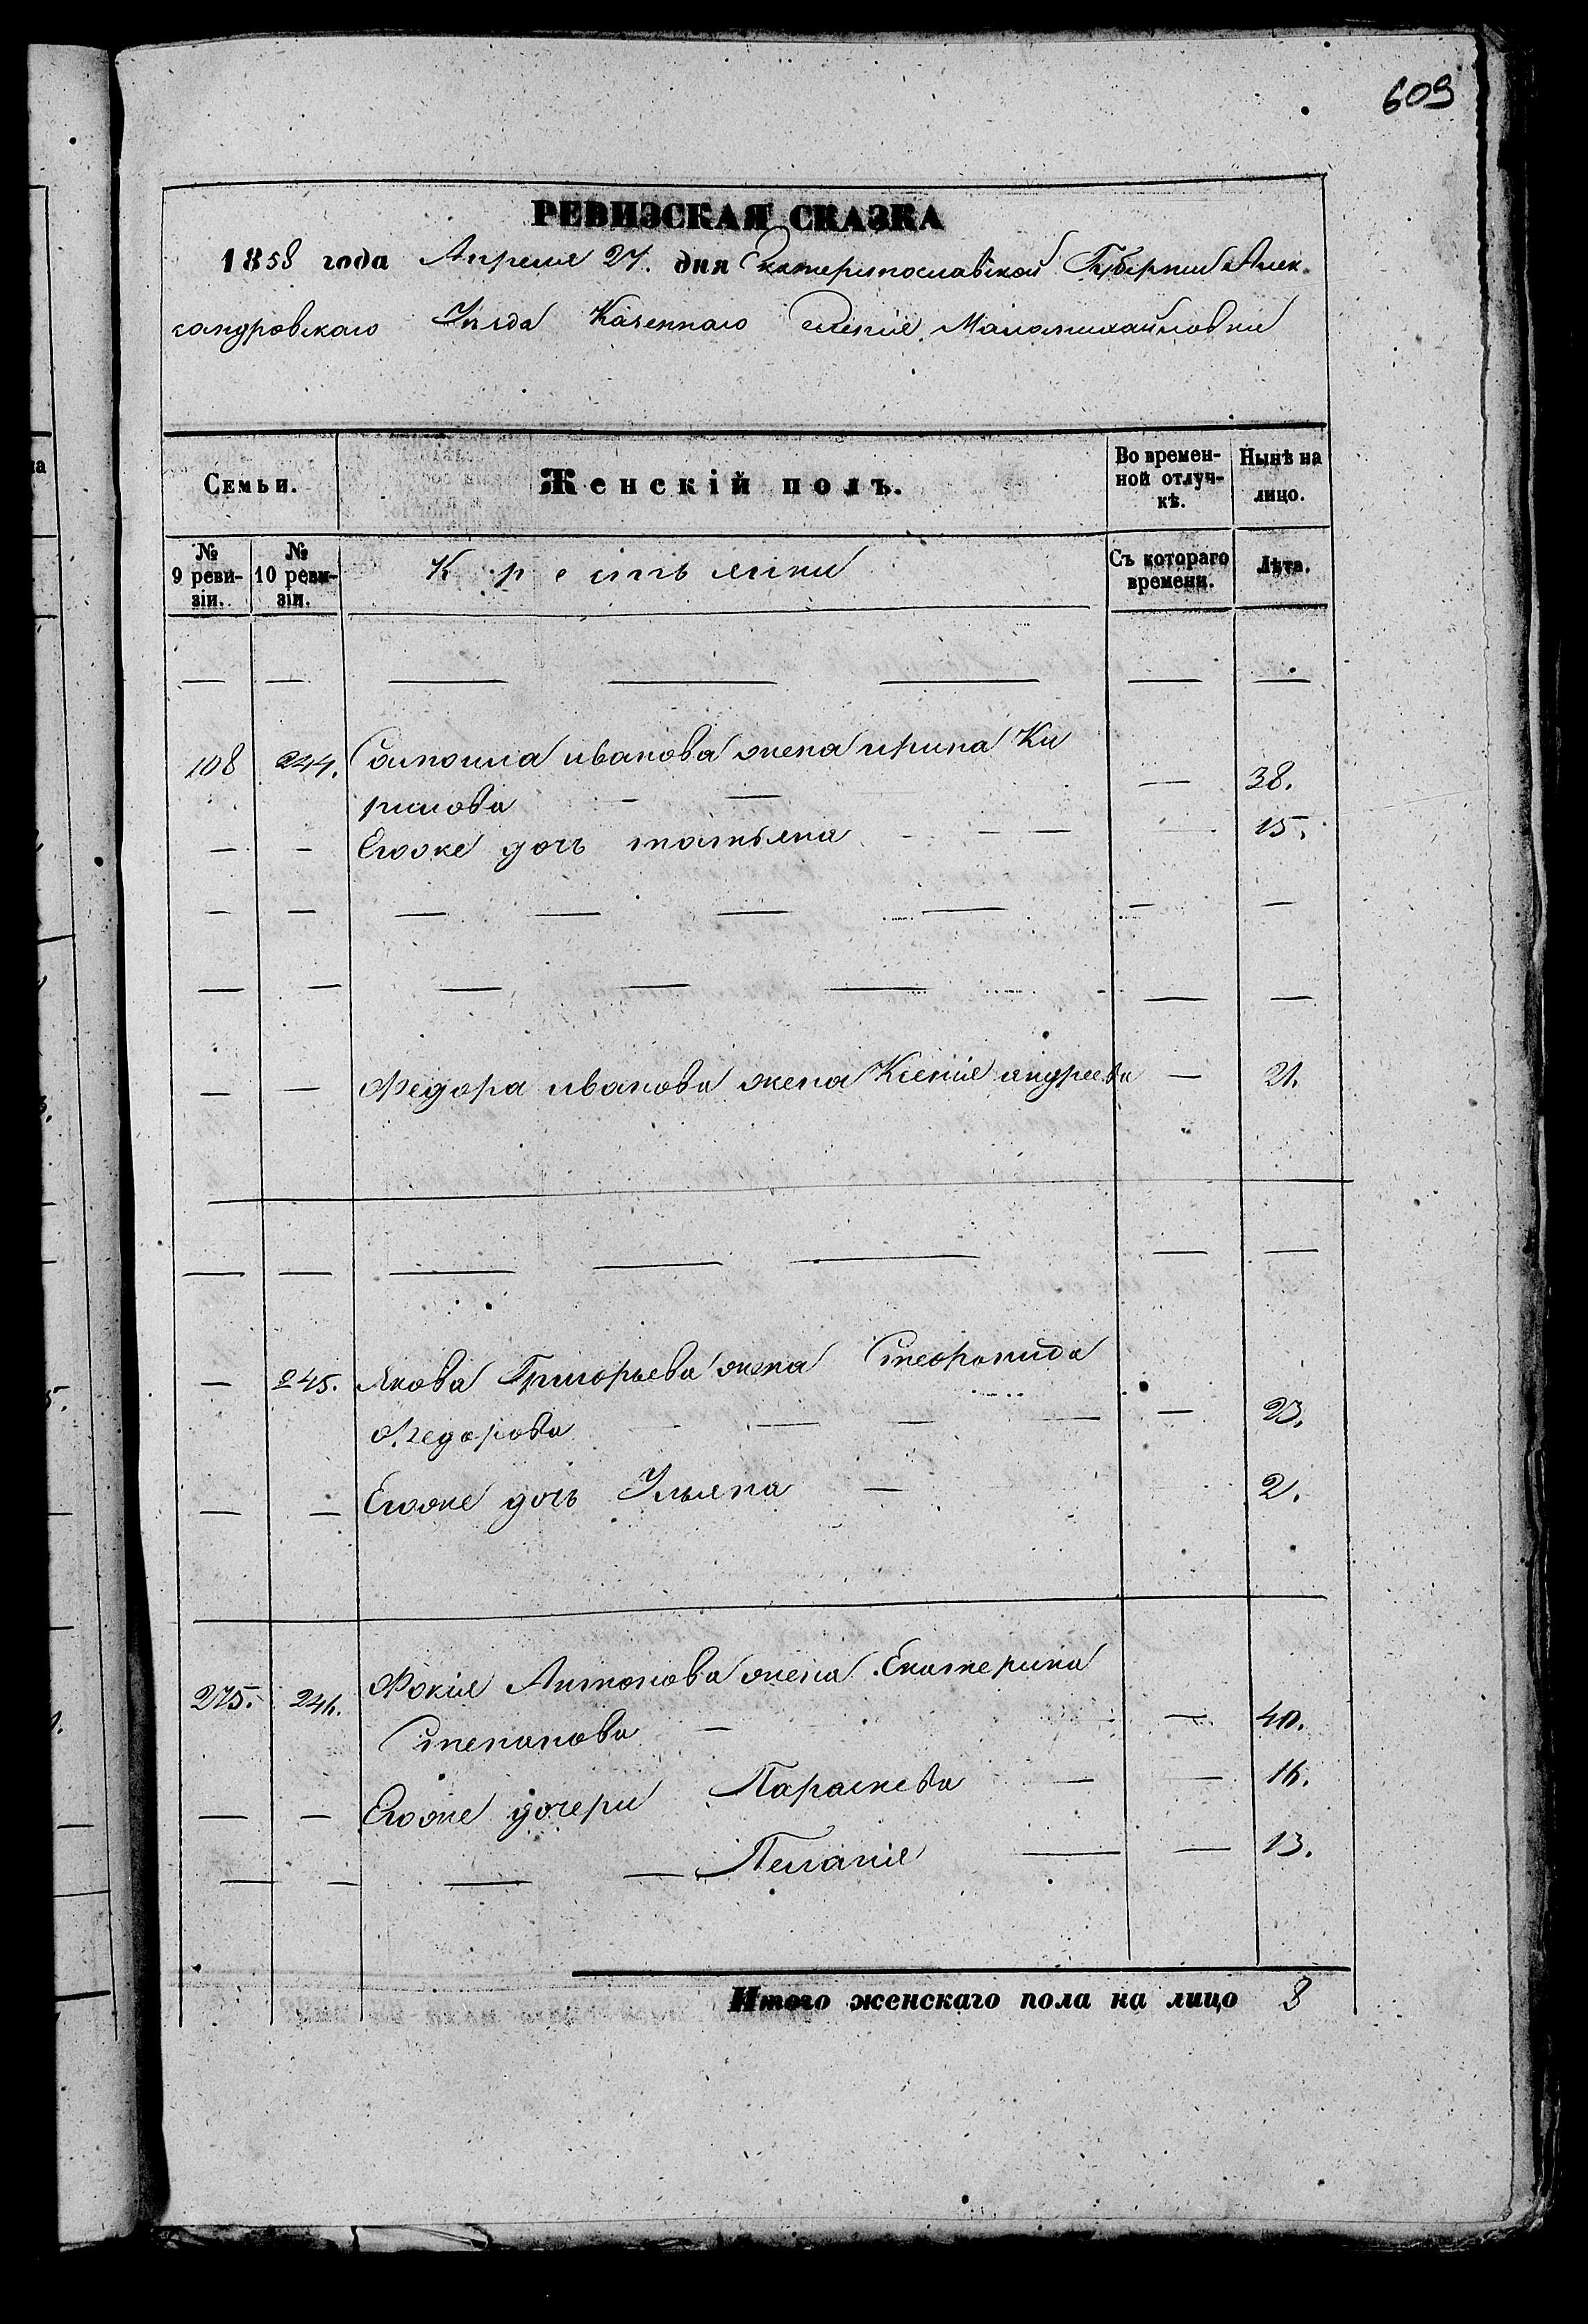 609
РЕВИЗСКАЯ СКАЗКА
1858 года Апреля 27. дня Екатеринославской Губернии Алек
сандровскаго Уезда Казеннаго селенія Маломихайловки
Семьи. Женскій полъ. Во времен-ной отлуч-кѣ. Нынѣ на лицо.
№ 9 реви-зіи. № 10 реви-зіи. Крестьянки Съ котораго времени. Лѣта.
108 244. Самоила иванова жена ирина Ки
рилова — — — 38.
— — Егоже дочь татьяна — — 15.
— — Федора иванова жена Ксенія андреева — 21.
— 245. Якова Григорьева жена
Федорова — — — — — 23.
— — Егоже дочь Ульяна — 2.
275. 246. Фокія Антонова жена Екатерина
Степанова — — 40.
— — Егоже дочери Параскева — — 16.
— — — — Пелагія — — 13.
Итого женскаго пола на лицо 8